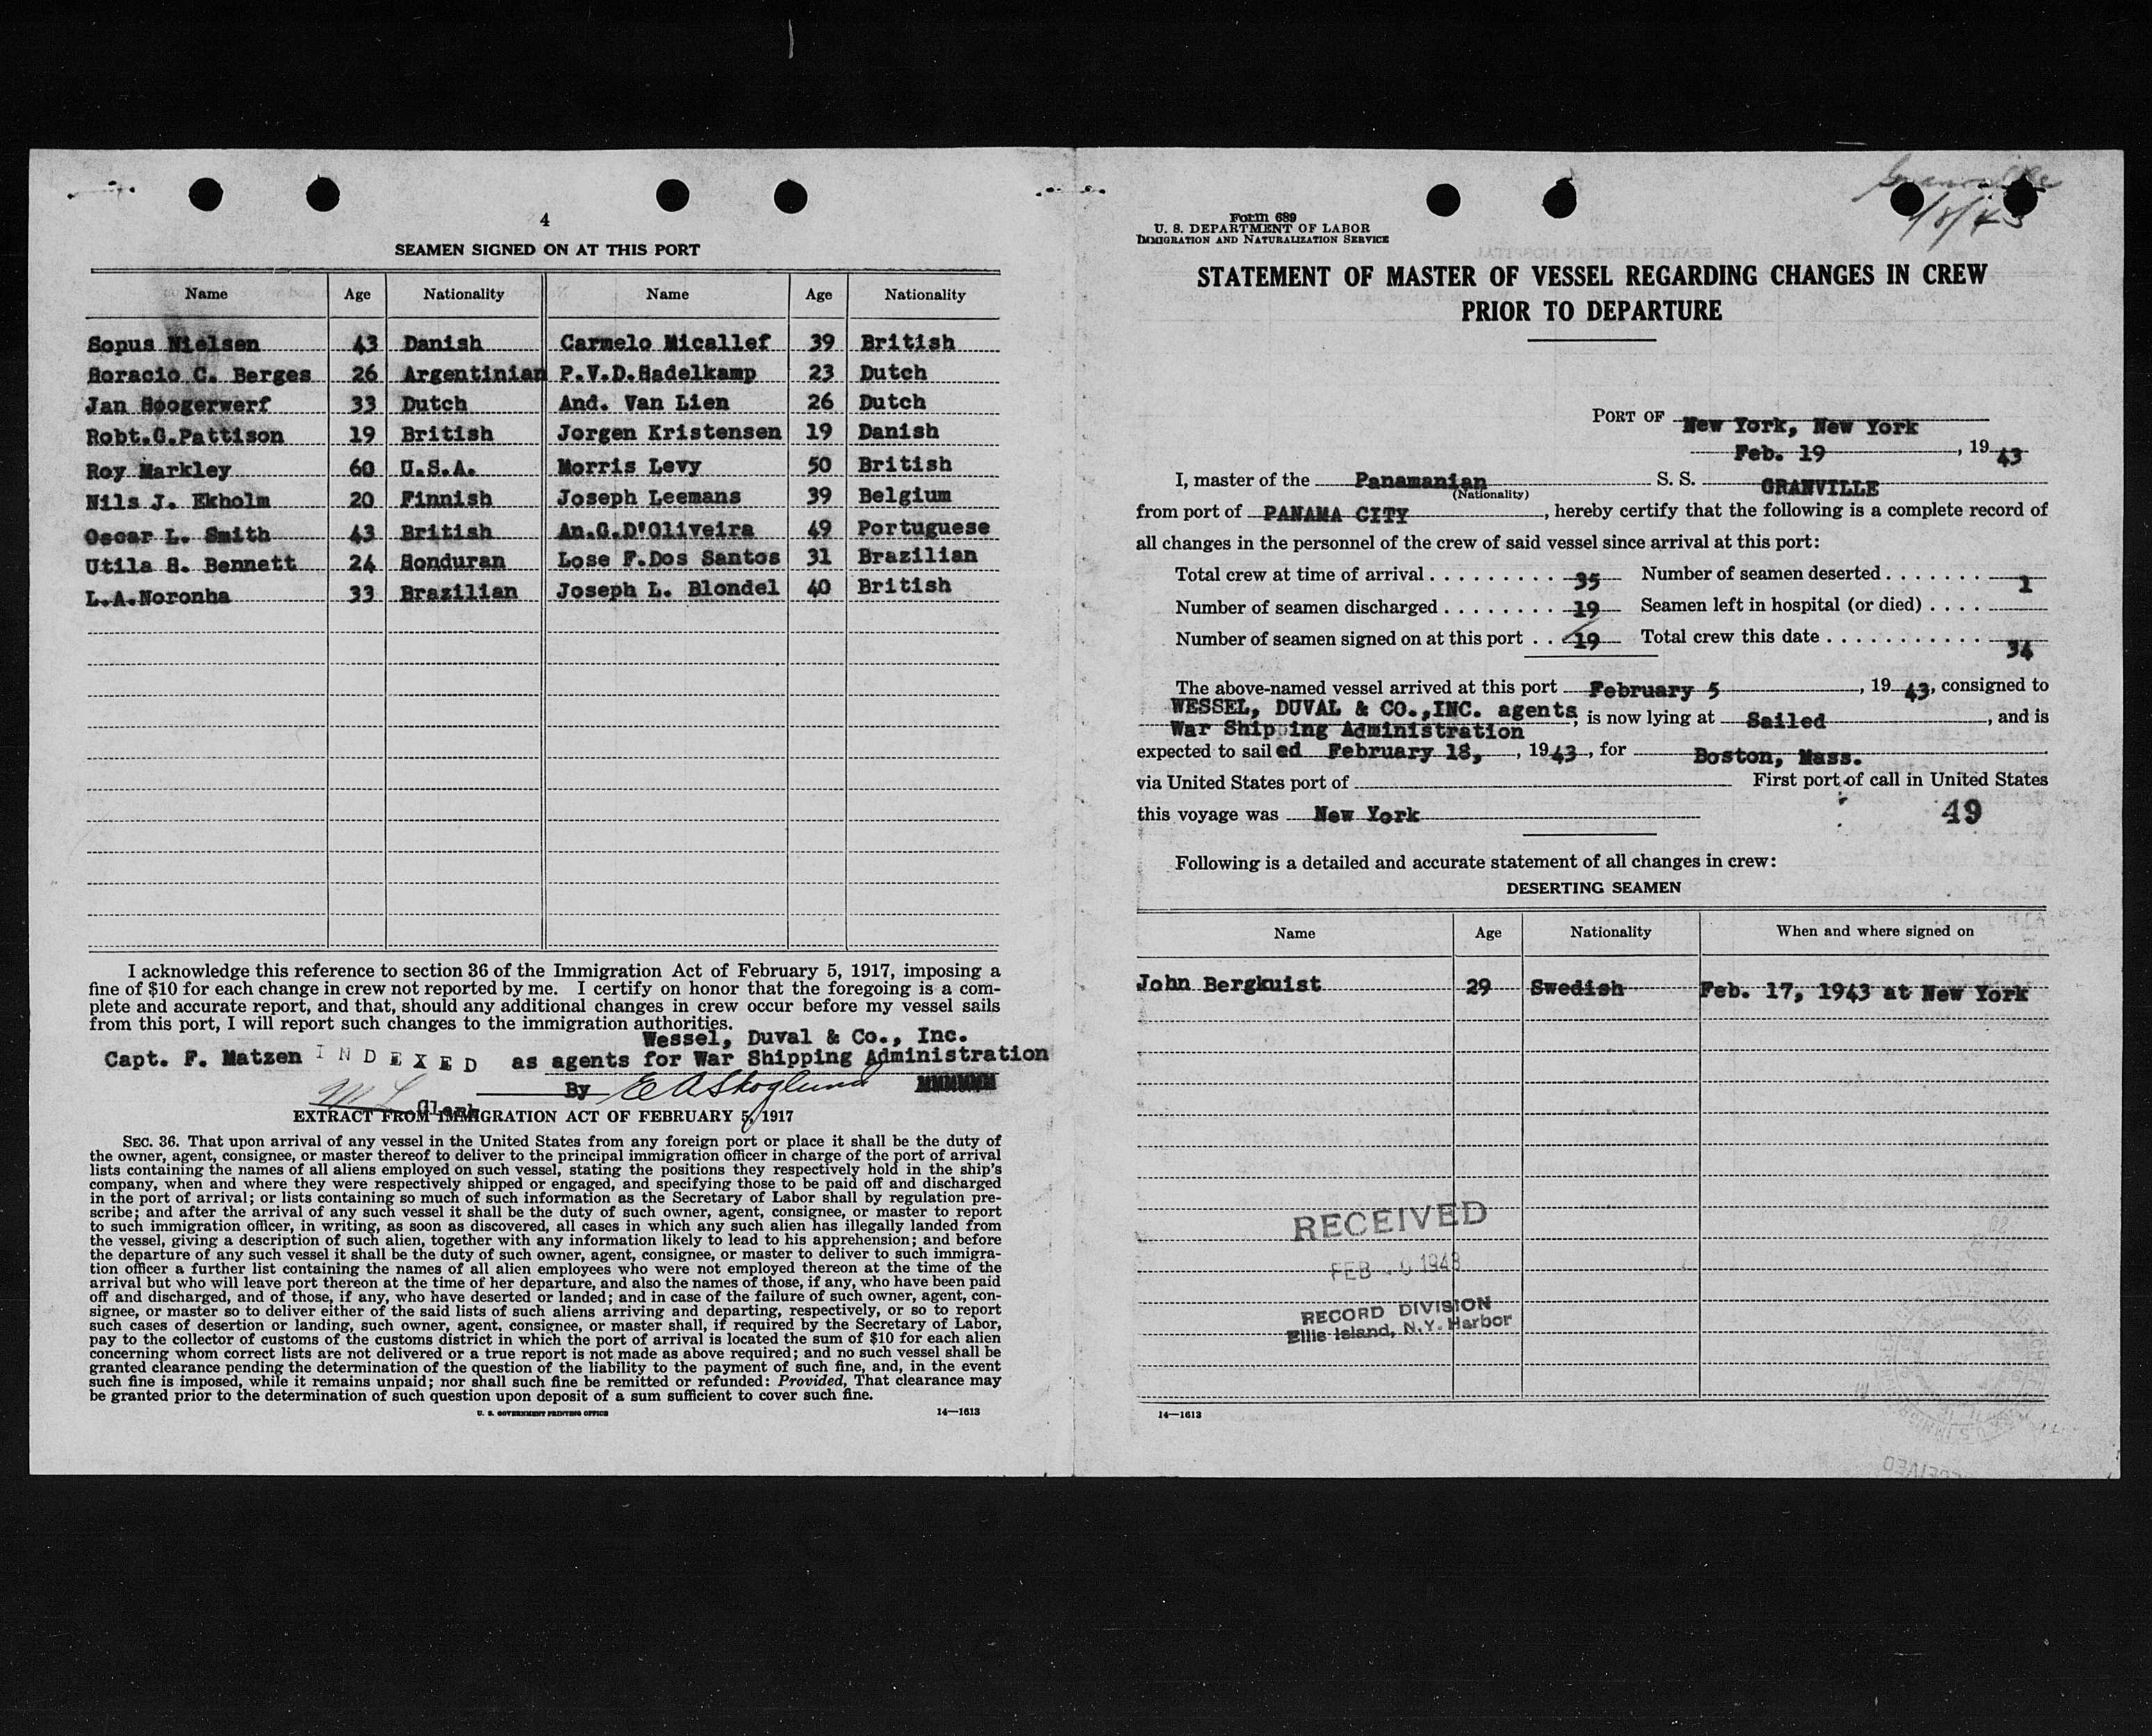 4
SEAMEN SIGNED ON AT THIS PORT
Name Age Nationality Name Age Nationality
Sopus Nielsen 43 Danish Carmelo Micallef 39 British
Horacio C. Berges 26 Argentinian P.V.D.Hadelkamp 23 Dutch
Jan Hoogerwerf 33 Dutch And. Van Lien 26 Dutch
Robt.G.Pattison 19 British Jorgen Kristensen 19 Danish
Roy Markley 60 U.S.A. Morris Levy 50 British
Nils J. Ekholm 20 Finnish Joseph Leemans 39 Belgium
Oscar L. Smith 43 British An.G.D'Oliveira 49 Portuguese
Utila H. Bennett 24 Honduran Lose F.Dos Santos 31 Brazilian
L.A.Noronha 33 Brazilian Joseph L. Blondel 40 British
I acknowledge this reference to section 36 of the Immigration Act of February 5, 1917, imposing a
fine of $10 for each change in crew not reported by me. I certify on honor that the foregoing is a com-
plete and accurate report, and that, should any additional changes in crew occur before my vessel sails
from this port, I will report such changes to the immigration authorities.
Wessel, Duval & Co., Inc.
Capt. F. Matzen INDEXED as agents for War Shipping Administration
By E A Skoglund
Clerk
EXTRACT FROM IMMIGRATION ACT OF FEBRUARY 5, 1917
SEC. 36. That upon arrival of any vessel in the United States from any foreign port or place it shall be the duty of
the owner, agent, consignee, or master thereof to deliver to the principal immigration officer in charge of the port of arrival
lists containing the names of all aliens employed on such vessel, stating the positions they respectively hold in the ship's
company, when and where they were respectively shipped or engaged, and specifying those to be paid off and discharged
in the port of arrival; or lists containing so much of such information as the Secretary of Labor shall by regulation pre-
scribe; and after the arrival of any such vessel it shall be the duty of such owner, agent, consignee, or master to report
to such immigration officer, in writing, as soon as discovered, all cases in which any such alien has illegally landed from
the vessel, giving a description of such alien, together with any information likely to lead to his apprehension; and before
the departure of any such vessel it shall be the duty of such owner, agent, consignee, or master to deliver to such immigra-
tion officer a further list containing the names of all alien employees who were not employed thereon at the time of the
arrival but who will leave port thereon at the time of her departure, and also the names of those, if any, who have been paid
off and discharged, and of those, if any, who have deserted or landed; and in case of the failure of such owner, agent, con-
signee, or master so to deliver either of the said lists of such aliens arriving and departing, respectively, or so to report
such cases of desertion or landing, such owner, agent, consignee, or master shall, if required by the Secretary of Labor,
pay to the collector of customs of the customs district in which the port of arrival is located the sum of $10 for each alien
concerning whom correct lists are not delivered or a true report is not made as above required; and no such vessel shall be
granted clearance pending the determination of the question of the liability to the payment of such fine, and, in the event
such fine is imposed, while it remains unpaid; nor shall such fine be remitted or refunded: Provided, That clearance may
be granted prior to the determination of such question upon deposit of a sum sufficient to cover such fine.
U. S. GOVERNMENT PRINTING OFFICE 14—1613
Granville
Form 689
U. S. DEPARTMENT OF LABOR
IMMIGRATION AND NATURALIZATION SERVICE
STATEMENT OF MASTER OF VESSEL REGARDING CHANGES IN CREW
PRIOR TO DEPARTURE
PORT OF New York, New York
Feb. 19, 1943
I, master of the Panamanian S. S. GRANVILLE
(Nationality)
from port of PANAMA CITY, hereby certify that the following is a complete record of
all changes in the personnel of the crew of said vessel since arrival at this port:
Total crew at time of arrival . . . . . . . . . 35 Number of seamen deserted . . . . . . . 1
Number of seamen discharged . . . . . . . . 19 Seamen left in hospital (or died) . . . .
Number of seamen signed on at this port . . 19 Total crew this date . . . . . . . . . . . 34
The above-named vessel arrived at this port February 5, 1943, consigned to
WESSEL, DUVAL & CO.,INC. agents, is now lying at Sailed, and is
War Shipping Administration
expected to sailed February 18, 1943, for Boston, Mass.
via United States port of First port of call in United States
this voyage was New York 49
Following is a detailed and accurate statement of all changes in crew:
DESERTING SEAMEN
Name Age Nationality When and where signed on
John Bergkuist 29 Swedish Feb. 17, 1943 at New York
RECEIVED
FEB 1943
RECORD DIVISION
Ellis Island, N.Y. Harbor
14—1613